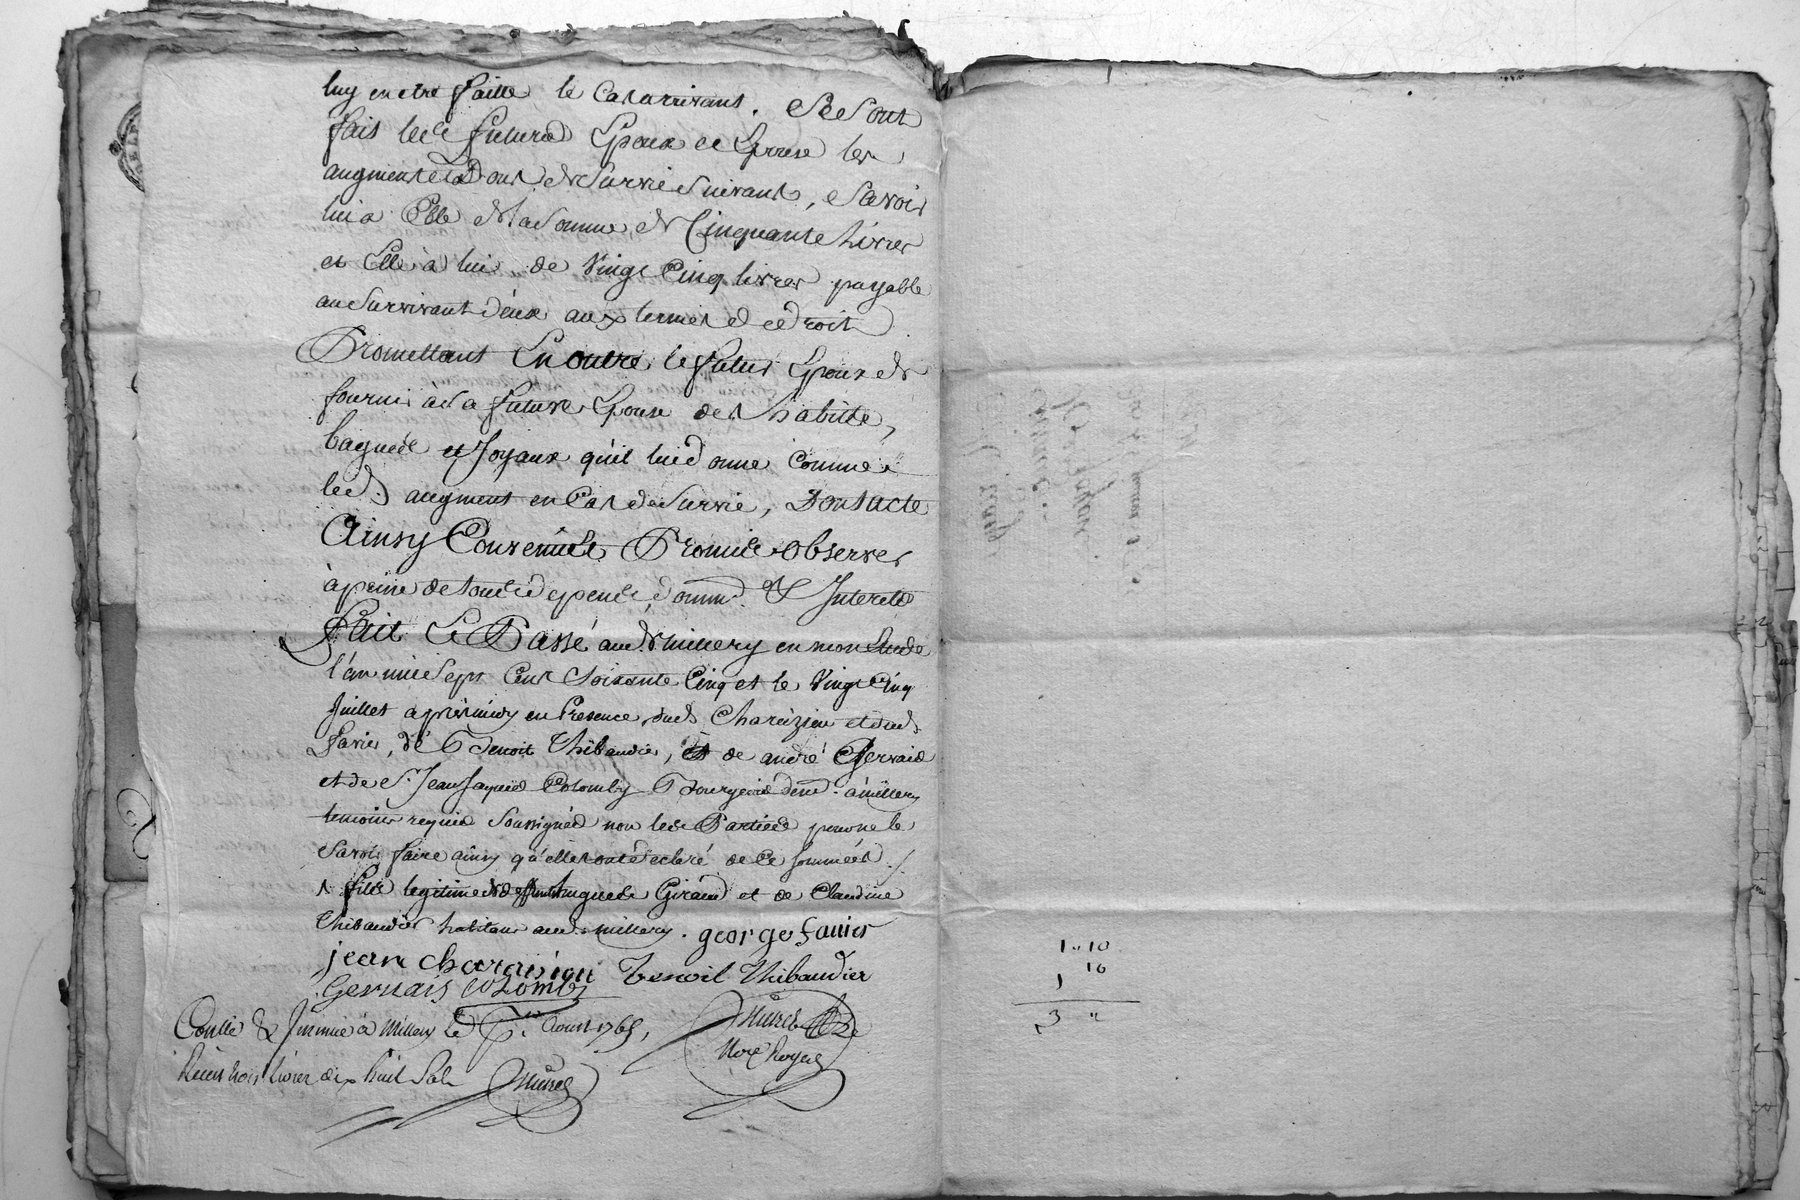 luy en etre faitte le cas arrivant. Se sont
fait lesd futures Epoux et Epouse les
augments dont et survie suivants, scavoir
lui a Elle de la somme de Cinquante Livres
et Elle à lui de Vingt Cinq livres payable
au survivant d'eux aux termes de droit
Promettant En outre le futur Epoux de
fournir à sa future Epouse des habitte,
bagues et Joyaux qu'il lui donne comme
led. augment en Cas de survie, Dont acte
Ainsy Convenüe Promis observer
à peine de tous depens, domm. & Interets
Fait Et Passé aud. millery en mon Etude
l'an mil sept Cent soixante Cinq et le Vingt Cinq
Juillet après midy en Presence dud. Charézieu et dud.
favier, de Sr Benoit Thibaudier, et de andré Gervais
et de Sr. Jean Jaques Colomby Bourgeois dem. à millery
temoins requis soussignés non lesd. Parties pour ne le
Savoir faire ainsy qu'elles ont declaré de ce sommées ./.
fille legitime de deffunt hugues Giraud et de Claudine
Thibaudier habitans aud. millery. george favier
jean charaizieu benoit thibaudier
Gervais Colomby
Conllé & Insinué à Millery le Août 1765,
Reçu trois Livres dix huit Sols
Notre Royal
1 " 10
1 16
3 "